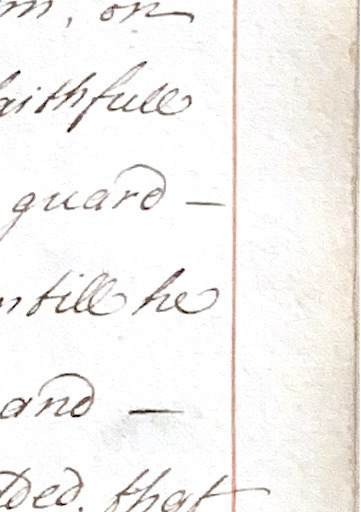 m, on
aithfull
guard —
ntill he
and —
ded, that